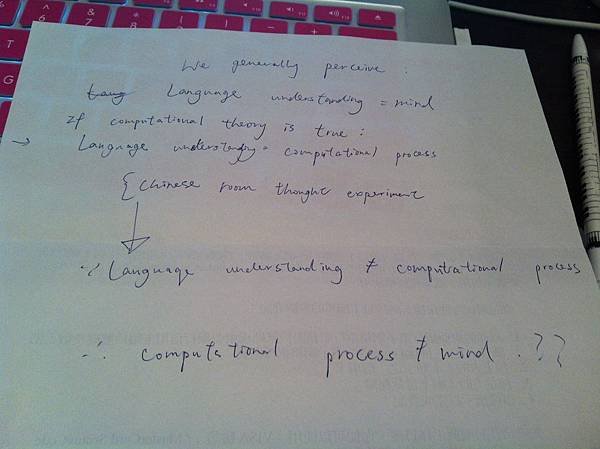 We generally perceive :
Lang Language understanding = mind
If computational theory is true :
→ Language understanding = computational process
{ Chinese room thought experiment
∵ Language understanding ≠ computational process
∴ computational process ≠ mind . ??